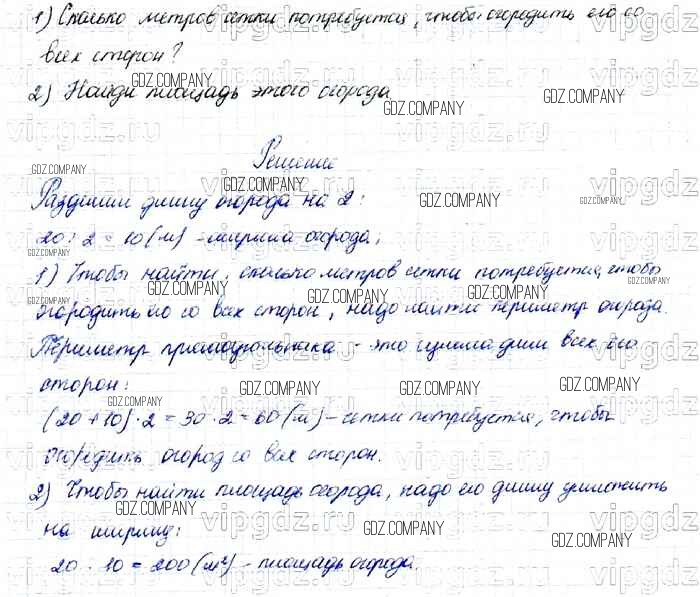 1) Сколько метров сетки потребуется, чтобы огородить его со
всех сторон?
2) Найди площадь этого огорода
Решение
Разделим длину огорода на 2:
20 : 2 = 10 (м) - ширина огорода;
1) Чтобы найти, сколько метров сетки потребуется, чтобы
огородить его со всех сторон, надо найти периметр огорода.
Периметр прямоугольника - это сумма длин всех его
сторон:
(20 + 10) · 2 = 30 · 2 = 60 (м) - сетки потребуется, чтобы
огородить огород со всех сторон.
2) Чтобы найти площадь огорода, надо его длину умножить
на ширину:
20 · 10 = 200 (м²) - площадь огорода.
GDZ.COMPANY
vipgdz.ru